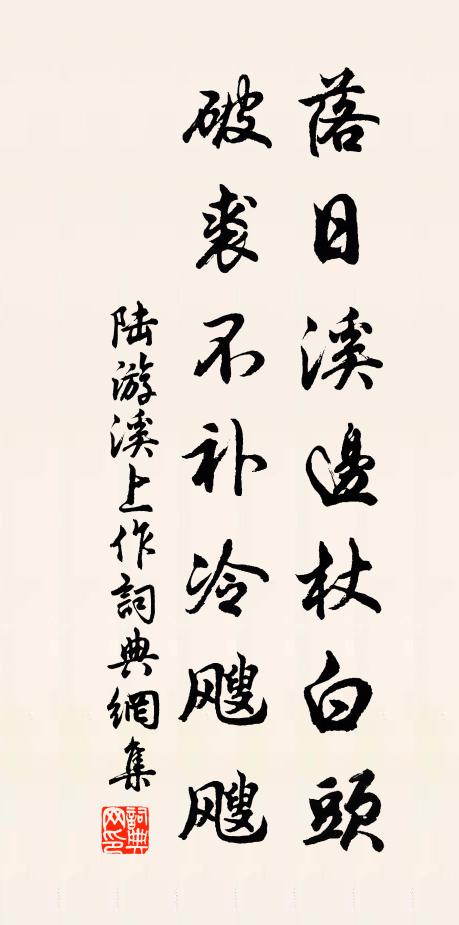 落日溪邊杖白頭
破裘不补冷飕飕
陆游溪上作詞典網集
詞典網印